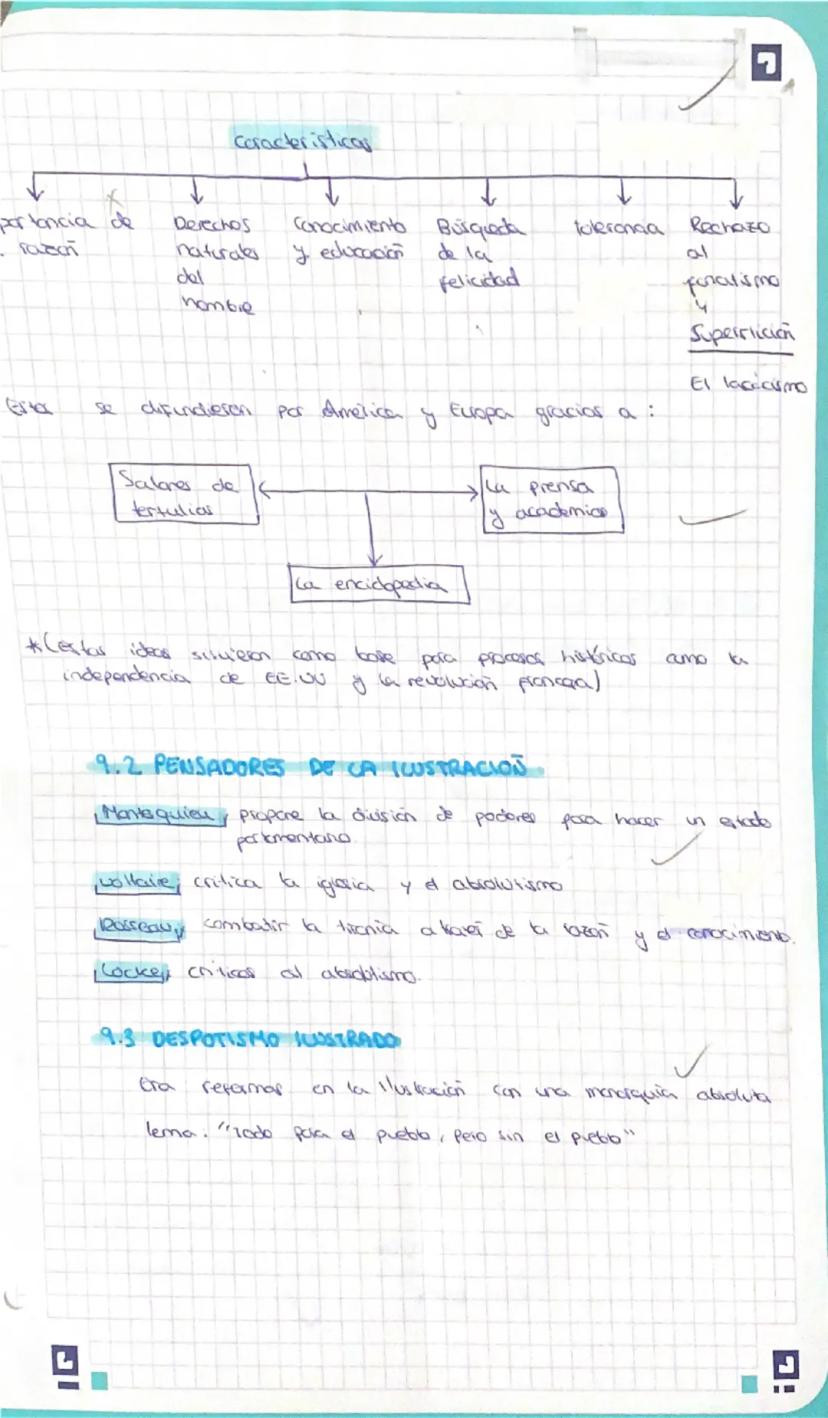 Características
portancia de Derechos Conocimiento Búsqueda tolerancia Rechazo
razón naturales y educación de la al
del felicidad fanatismo
hombre y
Superstición
El laicicismo
Estas se difundiesen por América y Europa gracias a:
Salones de La prensa
tertulias y academias
La enciclopedia
*(estas ideas sirvieron como base para procesos históricos como la
independencia de EE.UU y la revolución francesa)
9.2 PENSADORES DE LA ILUSTRACIÓN
Montesquieu, propone la división de poderes para hacer un estado
parlamentario.
Voltaire, critica la iglesia y el absolutismo
Rosseau, combatir la tiranía a través de la razón y el conocimiento.
Locke, críticas al absolutismo.
9.3 DESPOTISMO ILUSTRADO
Era reformas en la Ilustración con una monarquía absoluta
lema: "Todo para el pueblo, pero sin el pueblo"